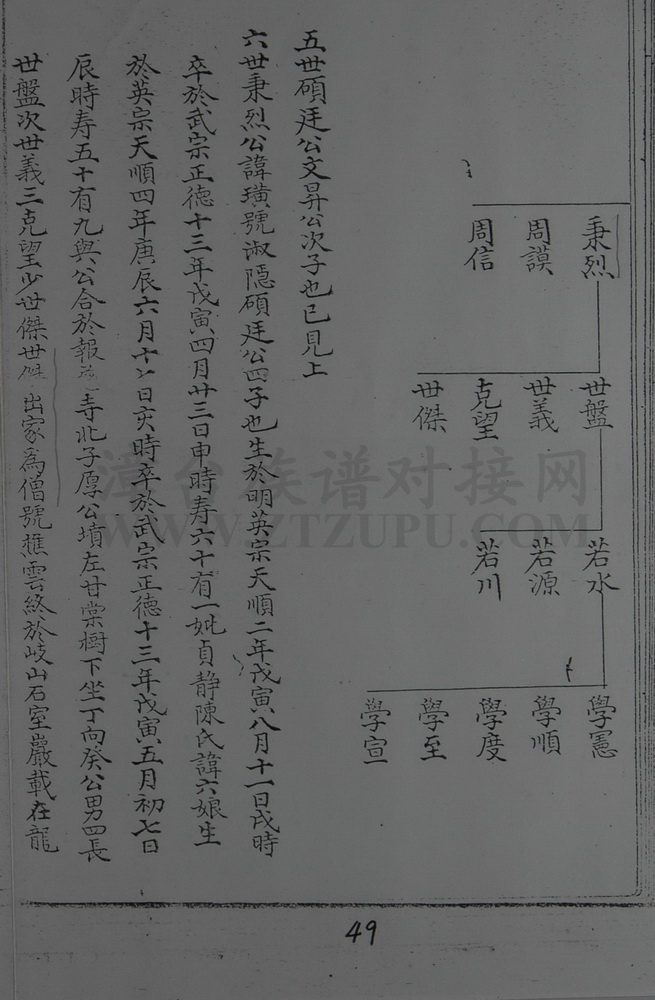 秉烈
周謨
周信
世盤
世義
克望
世傑
若水
若源
若川
學憲
學順
學度
學至
學宣
五世碩廷公文昇公次子也已見上
六世秉烈公諱璜號淑隱碩廷公四子也生於明英宗天順二年戊寅八月十一日戌時
卒於武宗正德十三年戊寅四月廿三日申時寿六十有一妣貞静陳氏諱六娘生
於英宗天順四年庚辰六月十 日亥時卒於武宗正德十三年戊寅五月初七日
辰時寿五十有九與公合於報 寺北子厚公墳左甘棠樹下坐丁向癸公男四長
世盤次世義三克望少世傑世傑出家為僧號樵雲終於岐山石室巖載在龍
漳台族谱对接网
WWW.ZTZUPU.COM
49